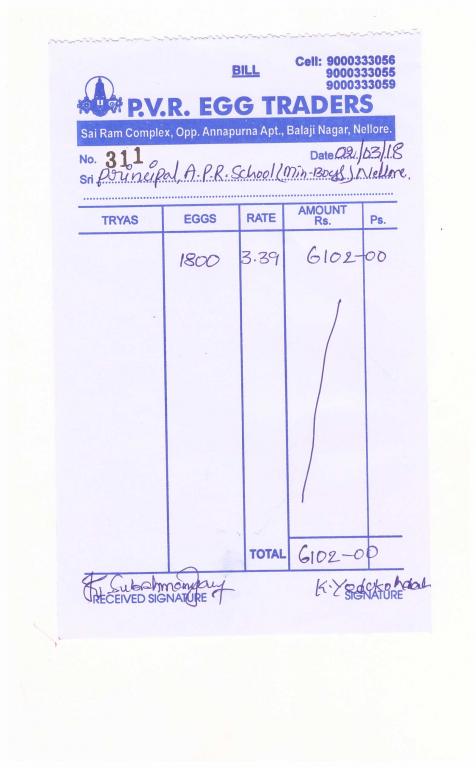 BILL
Cell: 9000333056
9000333055
9000333059
P.V.R. EGG TRADERS
Sai Ram Complex, Opp. Annapurna Apt., Balaji Nagar, Nellore.
No. 311 Date 02/03/18
Sri Principal, A.P.R. School (Min-Boys) Nellore.
TRYAS EGGS RATE AMOUNT Rs. Ps.
1800 3.39 6102-00
TOTAL 6102-00
RECEIVED SIGNATURE SIGNATURE